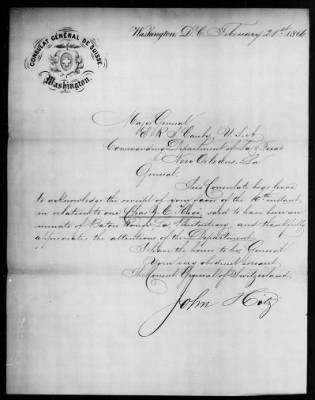 CONSULAT GÉNÉRAL DE SUISSE.
Washington.
Washington D.C. February 21st 1866
Major General
E R S Canby, U.S.A
Commanding Department of
New Orleans, La
General.
This Consulate begs leave
to acknowledge the receipt of your favor of the 10th instant,
in relation to one Chas. said to have been an
inmate of Baton Rouge La Penitentiary, and thankfully
appreciates the attention of the Department.
I have the honor to be General
Your very obedient servant
The Consul General of Switzerland.
John Hitz